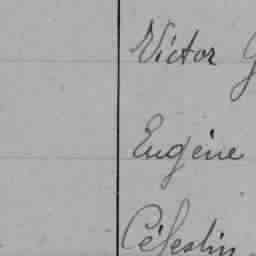 Victor G
Eugène
Célestin